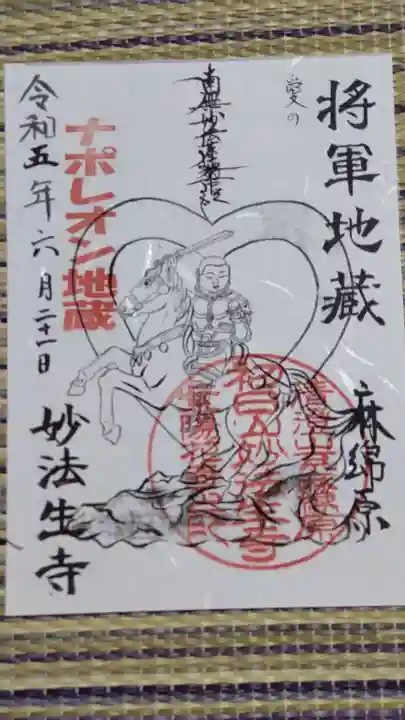 愛の
将軍地蔵
麻綿原
南無妙法蓮華経
ナポレオン地蔵
令和五年六月二十一日
妙法生寺